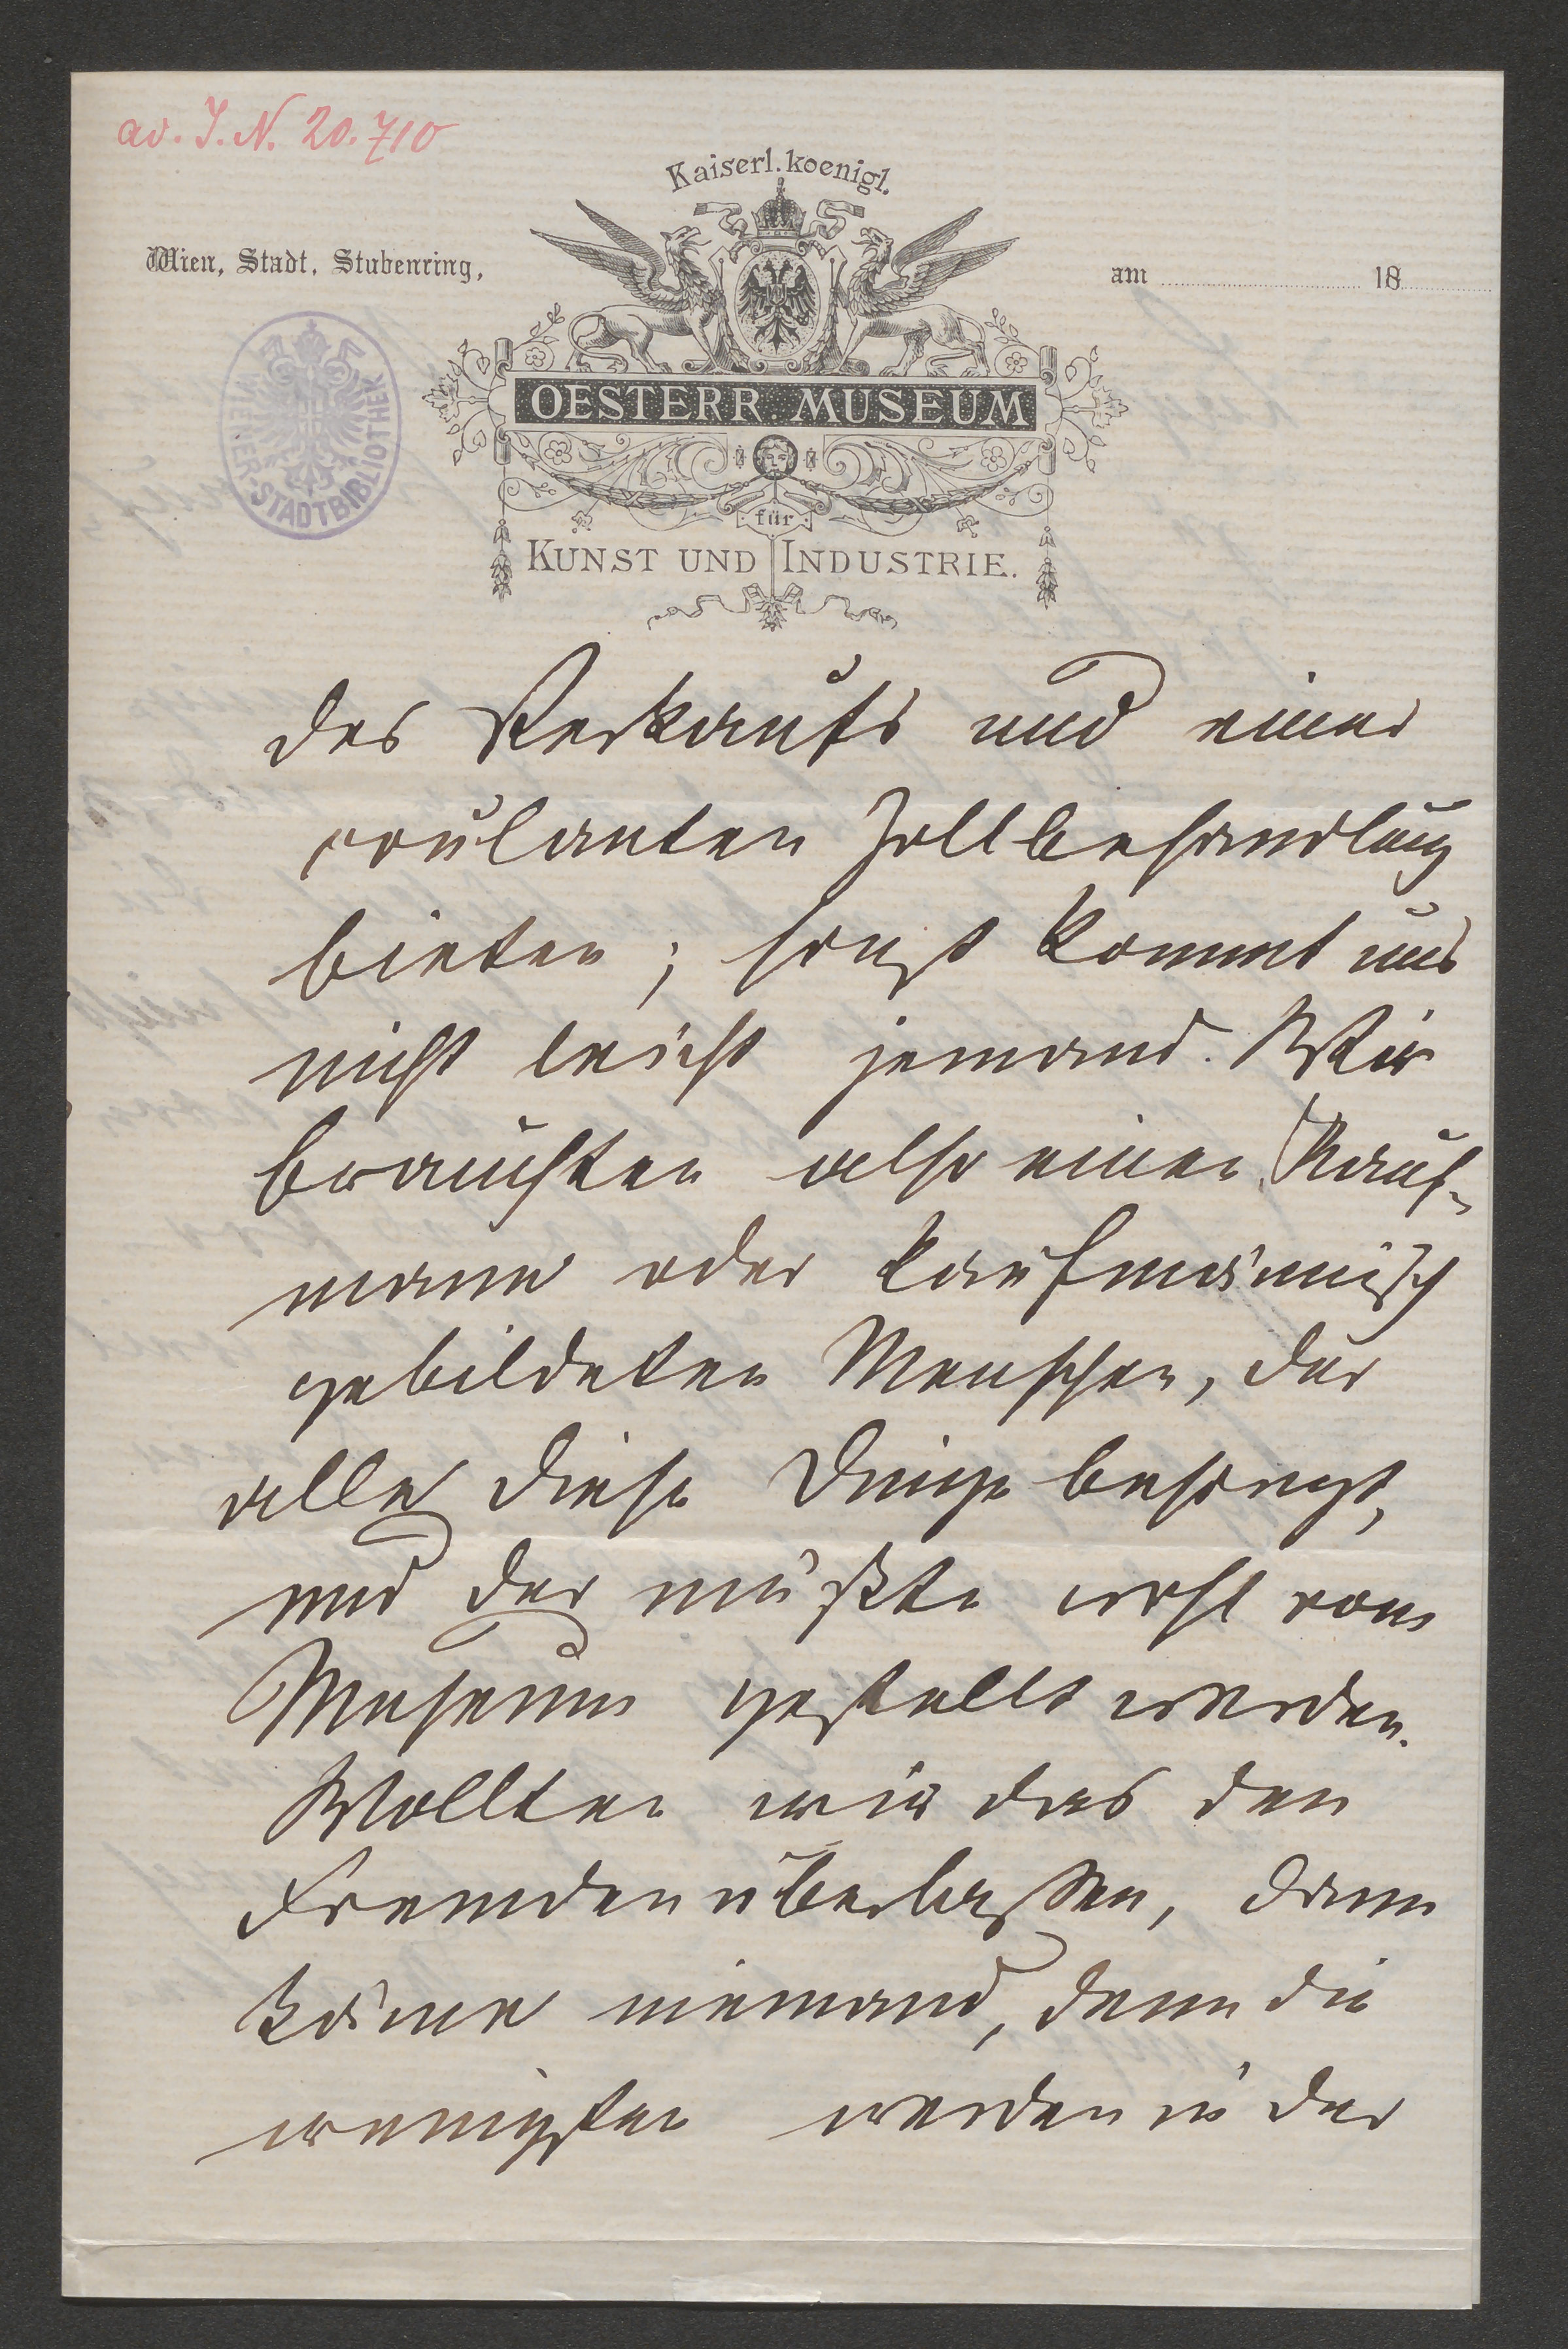 ad. I. N. 20.710
Kaiserl. koenigl.
Wien, Stadt, Stubenring,
am 18
WIENER-STADTBIBLIOTHEK
OESTERR. MUSEUM
für
KUNST UND INDUSTRIE.
des Verkaufs und einer
coulanten Zollbehandlung
bieten; sonst kommt uns
nicht leicht jemand. Wir
brauchten also einen Kauf-
mann oder kaufmännisch
gebildeten Menschen, der
alle diese Dinge besorgt,
und der müßte wohl vom
Museum gestellt werden.
Wollten wir das den
Fremden überlassen, dann
käme niemand, denn die
wenigsten werden in der